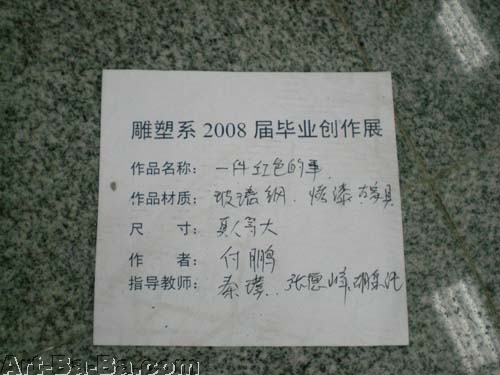 雕塑系 2008 届毕业创作展
作品名称: 一件红色的事
作品材质: 玻璃钢、烤漆
尺 寸: 真人等大
作 者: 付鹏
指导教师: 秦璞
Art-Ba-Ba.com/